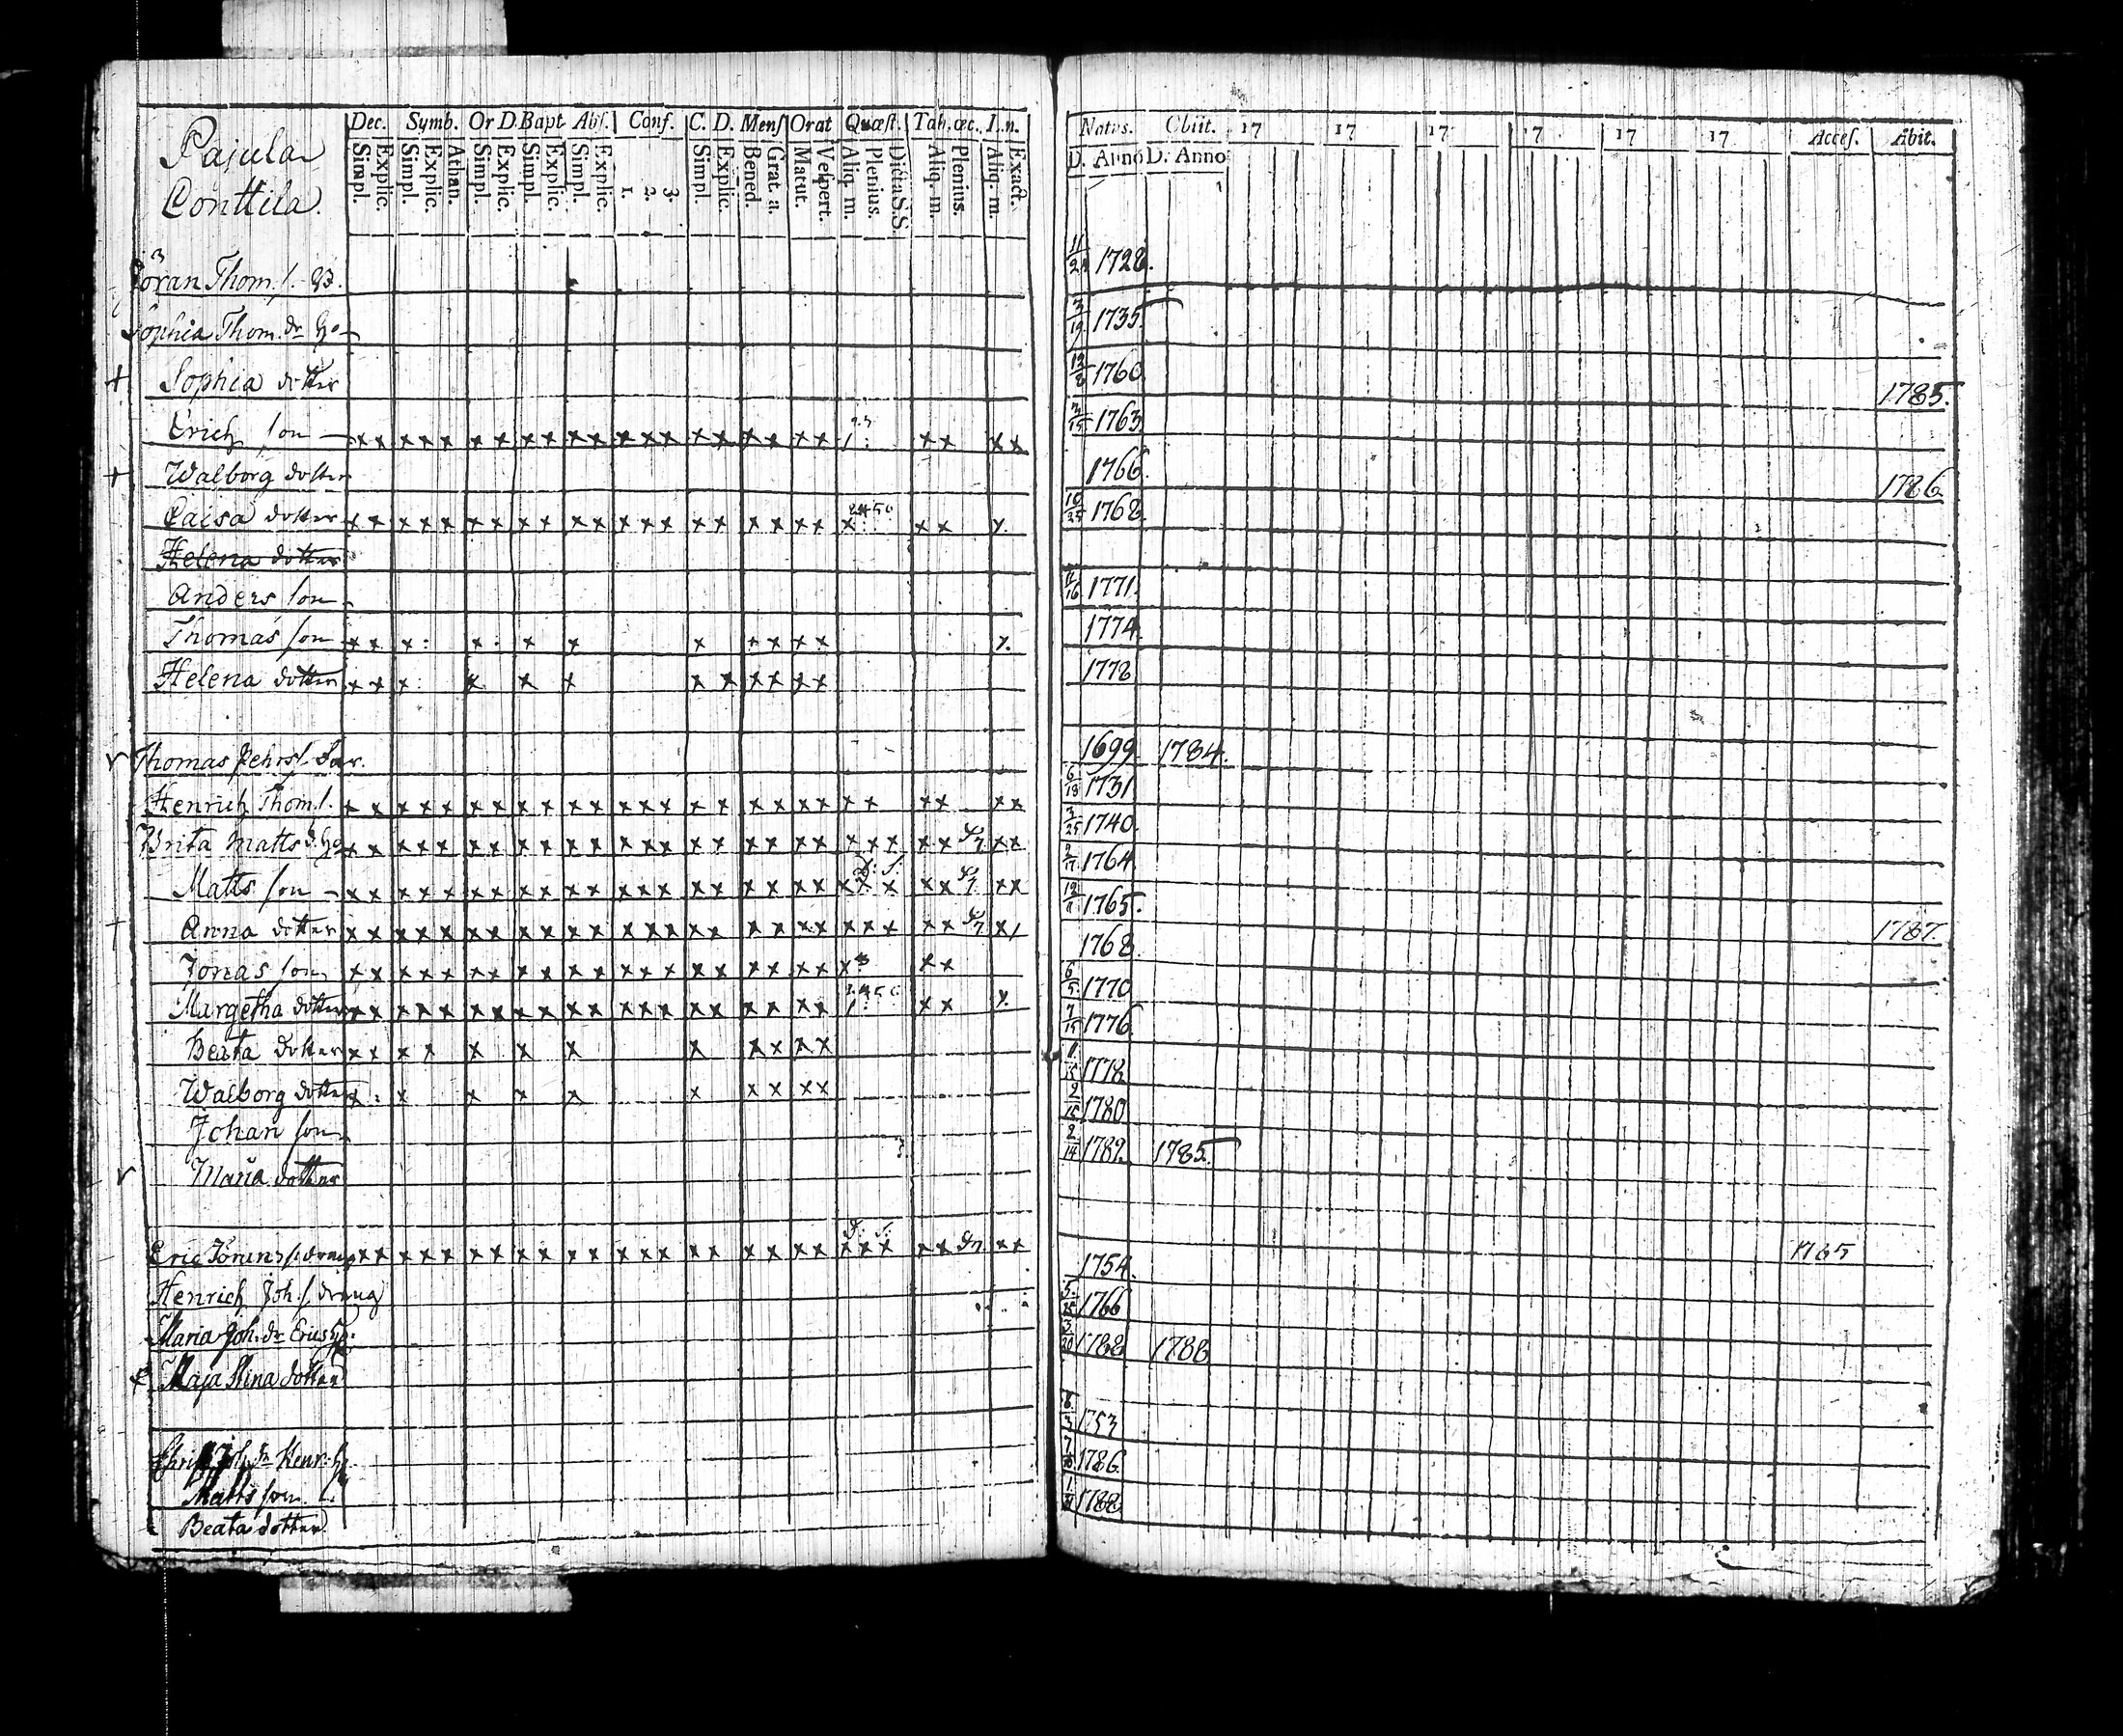 Pajula
Conttila.
Dec. Symb. Or D. Bapt Abs. Conf. C. D. Mens Orat Quæst. Tab. œc. I..n.
Simpl. Explic. Simpl. Explic. Athan. Simpl. Explic. Simpl. Explic. Simpl. Explic. 1. 2. 3. Simpl. Explic. Bened. Grat. a. Matut. Vespert. Aliq. m. Plenius. Dicta S.S. Aliq. m. Plenius. Aliq. m. Exact.
Natus. Obiit. 17 17 17 17 17 17 Acces. Abit.
D. Anno D. Anno
Göran Thom. s. 11/21 1728.
Sophia Thom. dr 3/19 1735
+ Sophia dotter 12/8 1760 1785.
Erich son x x x x x x x x x x x x x x x x x x x x x x x x 1763
+ Walborg dotter 1766 1786
Caisa dotter x x x x x x x x x x x x x x x x x x x x x x x 10/25 1768.
Helena dotter
Anders son 11/16 1771.
Thomas son x x x : x . x x x x x x x x. 1774
Helena dotter x x x : x x x x x x x x x 1778
Thomas Pehrs s. 1699 1784.
Henrich Thom. s. x x x x x x x x x x x x x x x x x x x x x x x x x x 6/18 1731
Brita Matts d. x x x x x x x x x x x x x x x x x x x x x x x x x x x 3/25 1740.
Matts son D. S. x x x x x x x x x x x x x x x x x x x x x x x x x x x 2/17 1764.
+ Anna dotter x x x x x x x x x x x x x x x x x x x x x x x x x x 1765. 1787.
Jonas son x x x x x x x x x x x x x x x x x x x x x x x 1768
Margetha dotter x x x x x x x x x x x x x x x x x x x x x x 6/5 1770
Beata dotter x x x x x x x x x x x x 7/15 1776
Walborg dotter x : x x x x x x x x x 11/15 1778
Johan son 2/15 1780
Maria dotter 2/14 1782. 1785.
Eric Görans s. dräng D. S. x x x x x x x x x x x x x x x x x x x x x x x x x x 1754. 1785
Henrich Joh. s. dräng 1766
Maria Joh. dr Erics
Maja Stina dotter 3/20 1788 1788
Joh. dr Henr. 1753
Matts son 1786
Beata dotter 1788